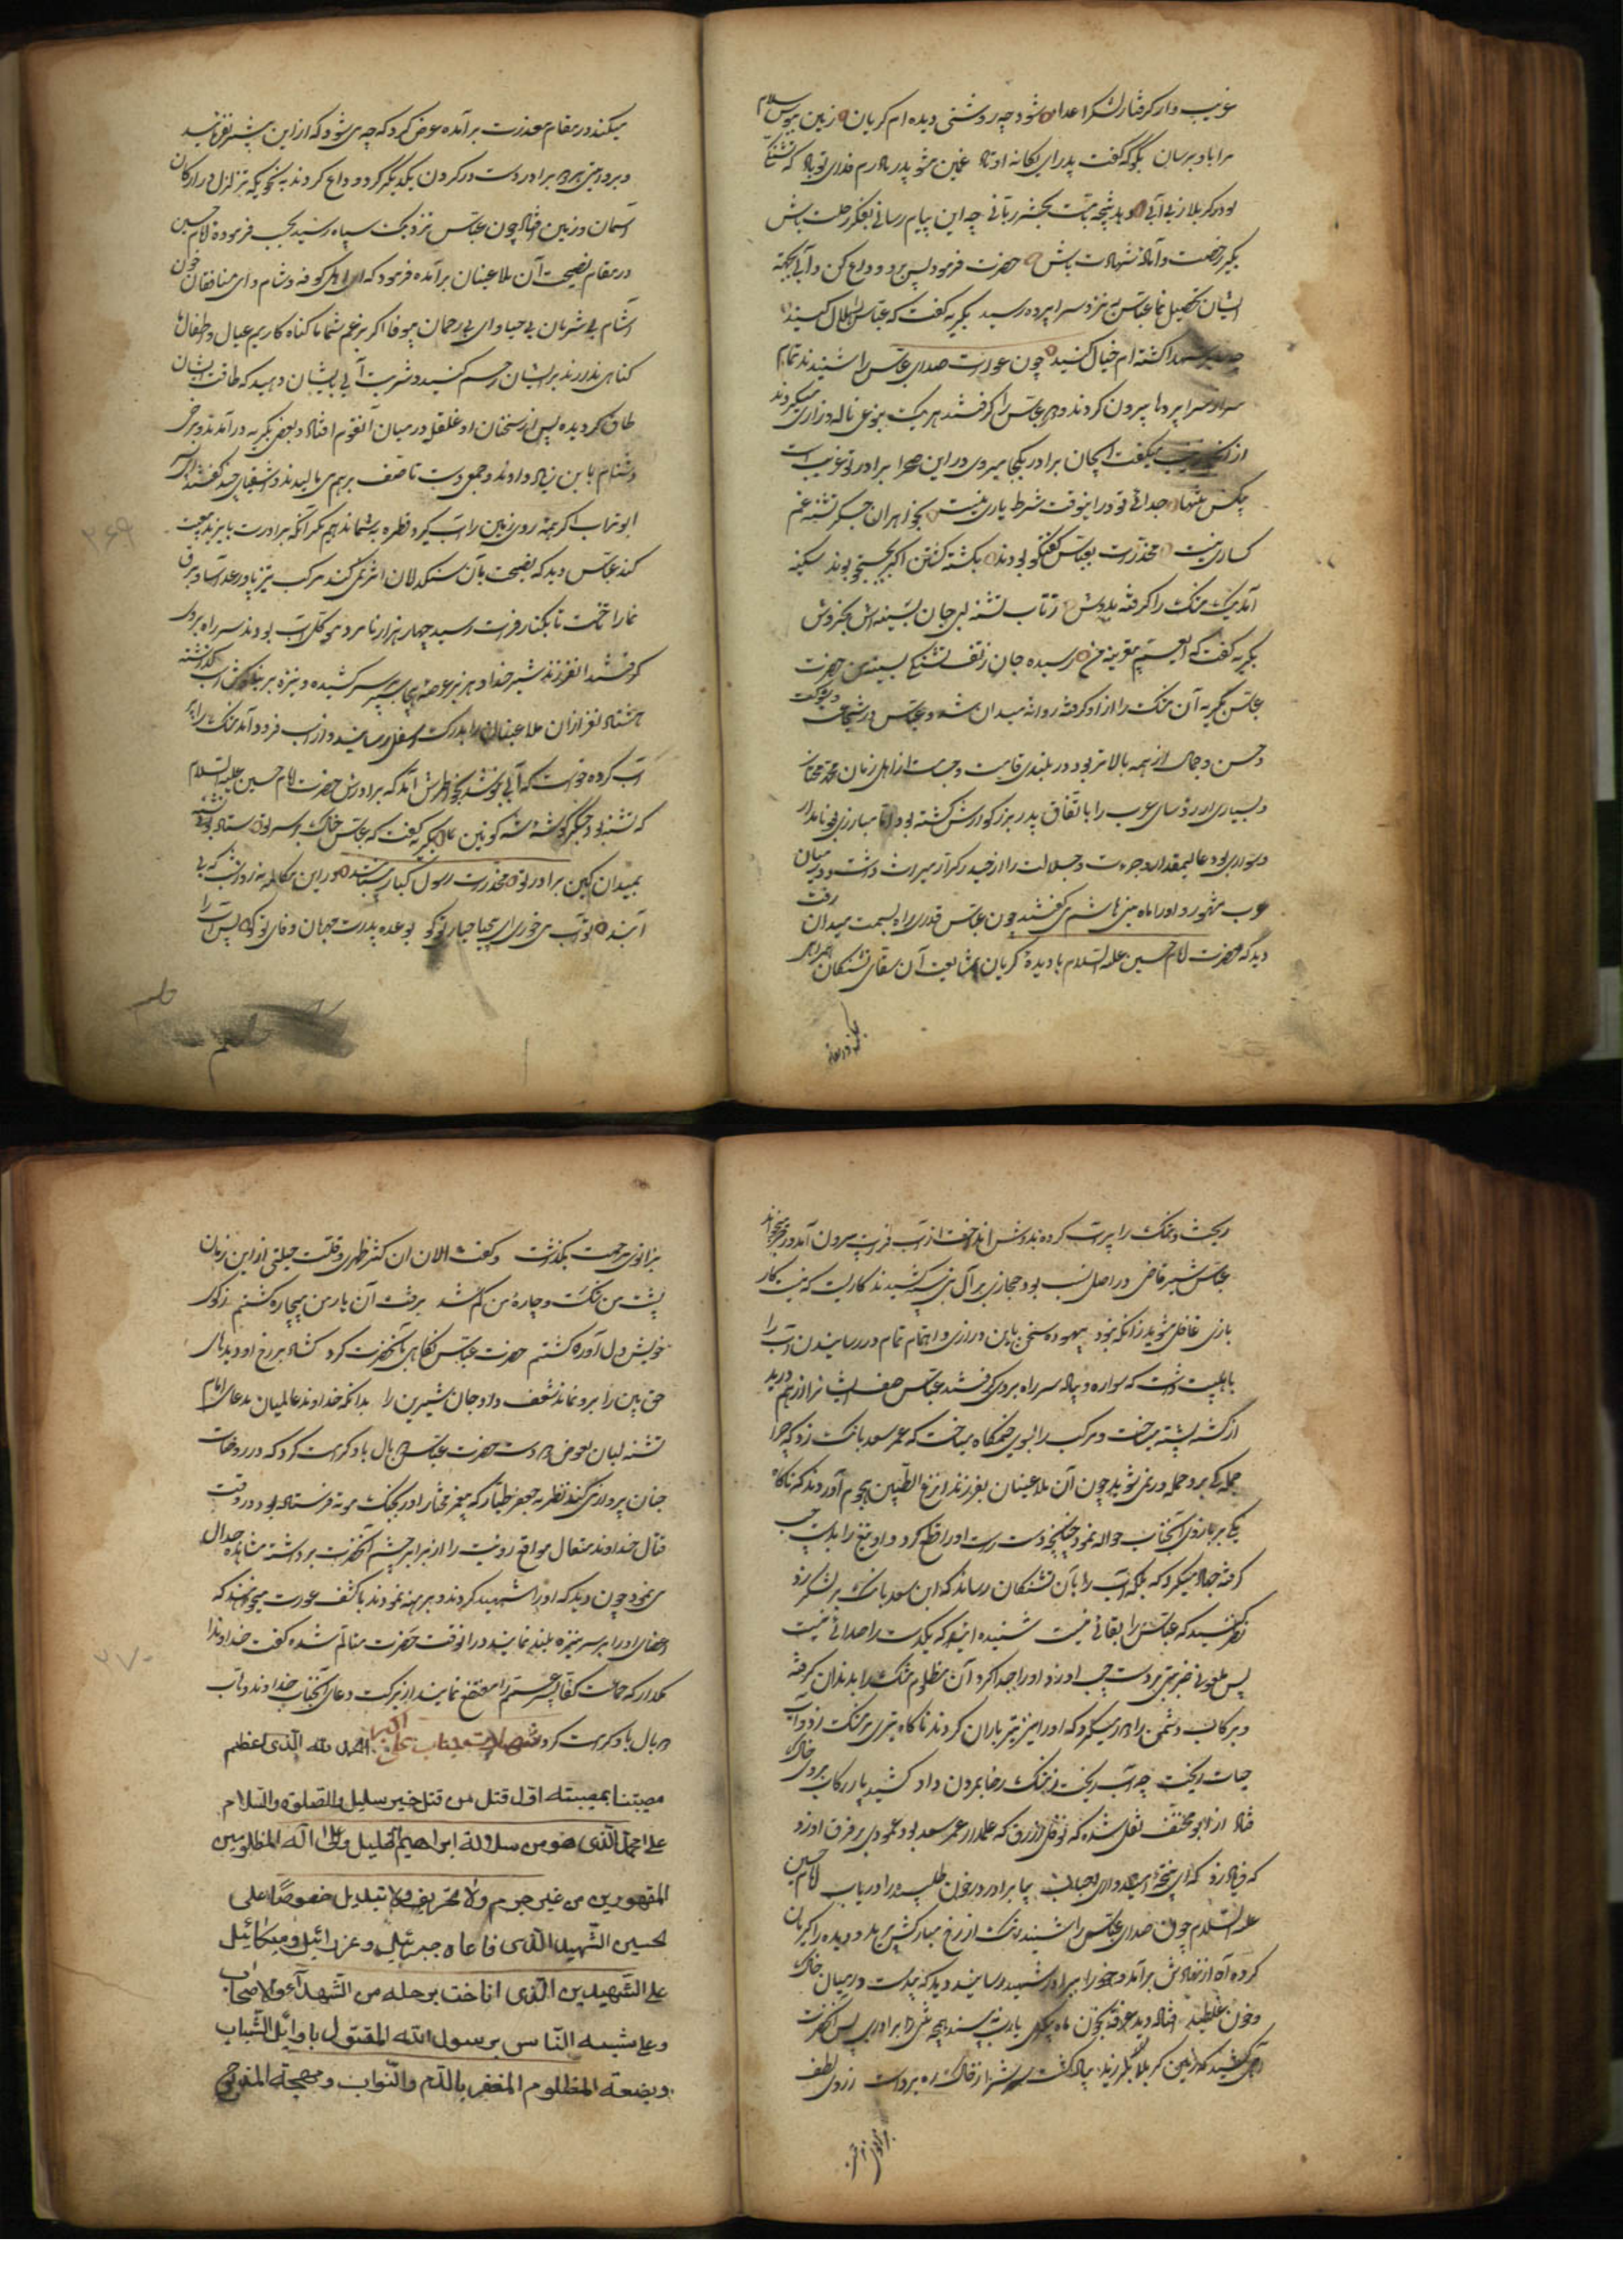 غریب وار گرفتار لشکر اعدا شود چه روشنی دیده ام گریان زمین بوس سلام
مرا باو برسان بگو که گفت پدر ای یگانه اوتاد غمین مشو پدر و مادرم فدای تو باد که تشنگی
تو در کربلا ز بی آبی
بگیر رخصت و آماده شهادت باش حضرت فرمود پس برو و وداع کن و آبی بجهة
ایشان تحصیل نما عباس به نزد سراپرده رسید بگریه گفت که عباس را حلال کنید
شهدا کشته ام خیال کنید چون عورات صدای عباس را شنیدند تمام
سر از سراپرده ها بیرون کردند و عباس را گرفتند هر یک بنوعی ناله و زاری میکردند
میگفت ای جان برادر بکجا میروی در این صحرا برادر تو غریب است
بیکس و تنها جدائی تو در اینوقت شرط یاری نیست بخواهران جگر تشنه غم
کساری نیست مخدرات بعباس گفتگو بودند بکشته گشتن اکبر بجستجو بودند سکینه
آمد یک مشک را گرفته بدوش ز تاب تشنه لبی جان بسینه اش بخروش
بگریه گفت که ای عم رسیده جان ز تف تشنگی بسینه من حضرت
عباس بگریه آن مشک را از او گرفته روانه میدان شد و عباس در شجاعت و شوکت
و حسن و جمال از همه بالاتر بود در بلندی قامت و جسامت از اهل زمان خود ممتاز
و بسیاری از رؤسای عرب را باتفاق پدر بزرگوارش کشته بود مبارزی بود نامدار
و سواری بود عالیمقدار و جرءت و جلالت را از حیدر کرار میراث داشت و در میان
عرب مشهور و او را ماه بنی هاشم می گفتند چون عباس قدری راه بسمت میدان رفت
دید که حضرت امام حسین علیه السلام با دیده گریان بمشایعت آن سقای تشنگان همراهی
میکند در مقام معذرت برآمده عرض کرد که چه می شود که از این پیشتر نفرمائید
و برگردید هر دو برادر دست در گردن یکدیگر کرده وداع کردند بنحویکه تزلزل در ارکان
آسمان و زمین افتاد چون عباس نزدیک سپاه رسید بحسب فرموده امام حسین
در مقام نصیحت آن ملاعینان برآمده فرمود که ای اهل کوفه و شام و ای منافقان خون
آشام بی شرمان بی حیا و ای بی رحمان بیوفا اگر بزعم شما ما گناه کاریم عیال و اطفال ما
گناهی ندارند بر ایشان رحم کنید و شربت آبی بایشان دهید که طاقت ایشان
طاق گردیده پس از سخنان او غلغله در میان آنقوم افتاد و بعضی بگریه درآمدند و برخی
دشنام بابن زیاد دادند و جمعی دست تاسف بر هم می مالیدند و اشقیای چند گفتند ای پسر
ابوتراب اگر همه روی زمین را آب گیرد قطره بشما ندهیم مگر آنکه برادرت با یزید بیعت
کند عباس دید که نصیحت بآن سنگدلان اثر نمی کند مرکب تیز پا و رعد آسا و برق
نما را تاخت تا بکنار فرات رسید چهار هزار نامرد موکل آب بودند سر راه بر او
گرفتند آنفرزند شیر خدا و هژبر عرصه هیجا سپر بر سر کشیده و نیزه بر بناگوش اسب گذاشته
هشتاد نفر از آن ملاعینان را بدرک اسفل رسانید و از اسب فرود آمد مشک را پر
آب کرده خواست که آبی بنوشد بخاطرش آمد که برادرش حضرت امام حسین علیه السلام
که تشنه بود جگر گوشه شه کونین بگریه گفت که عباس خاک بر سر تو ستاده تشنه
بمیدان کین برادر تو مخدرات رسول کبار در این مکالمه
آیند تو آب می خوری ای بیحیا حیای تو کو بوعده پدرت جهان وفای تو کو پس آب را
ریخت و مشک را پر آب کرده بدوش انداخت از آب فرات بیرون آمد و رجز میخواند
عباس شیر قاضی در اصل نسب بود حجازی بر آل نبی تیغ کشیدند کاریست که نیست کار
بازی غافل شوید زانکه نبود بیهوده سخن باین درازی و اهتمام تمام در رسانیدن آب را
باهلبیت داشت که سواره و پیاده سر راه بر وی گرفتند عباس صف ایشانرا از هم درید
از کشته پشته میساخت و مرکب را بسوی خیمگاه میتاخت که عمر سعد بانگ زد که چرا
جمله یکی بر او حمله ور نمی شوید چون آن ملاعینان بفرزند انزع البطین هجوم آوردند که ناگاه
یکی بر بازوی آنجناب حواله نمود چنانچه دست راست او را قطع کرد و او تیغ را بدست چپ
گرفته جهاد میکرد که بلکه آب را بآن تشنگان رساند که ابن سعد بانگ بر لشکر زد
نظر کنید که عباس را بقائی نیست شنیده اید که یکدست را صدائی نیست
پس ملعونی ضربتی بر دست چپ او زد او را جدا کرد آن مظلوم مشک را بدندان گرفته
و برکاب دشمن را دور میکرد که او را نیز تیر باران کردند ناگاه تیری بر مشک زد و آب
حیات ریخت چه آب ریخت ز مشک رضا بمردن داد کشید پا ز رکاب بر وی خاک
فتاد از ابو مخنف نقل شده که نوفل ازرق که علمدار عمر سعد بود عمودی بر فرق او زد
که فریاد زد که ای بیا برادر در خون طپیده را دریاب امام حسین
علیه السلام چون صدای عباس را شنید رنگ از رخ مبارکش پرید و دیده را گریان
کرده آه از نهادش برآمد و خود را ببرادر شهید رسانید دید که بیدست در میان خاک
و خون غلطیده افتاده دید غرقه بخون ماه پیکری یا رب نبیند هیچه برادری پس آنحضرت
آهی کشید که زمین کربلا بلرزید پیاده گشت سرش را ز خاک ره برداشت ز روی لطف
بزانوی مرحمت بگذاشت و گفت الان انکسر ظهری و قلت حیلتی از این زمان
پشت من شکست و چاره من کم شد برفت آن یار من بیچاره گشتم ز کوی
خویش دل آواره گشتم حضرت عباس نگاهی بآنحضرت کرد گشاد بر رخ او دیده های
حق بین را برو نماند شعف داد جان شیرین را بدانکه خداوند عالمیان بدعای امام
تشنه لبان بعوض دو دست حضرت عباس دو بال باو کرامت کرد که در روضات
جنان پرواز می کند نظیر جعفر طیار که پیغمبر مختار او را بجنگ موته فرستاده بود در وقت
قتال خداوند متعال موانع رؤیت را از برابر چشم آنحضرت برداشته مشاهده جدال
می نمود چون دید که او را شهید کردند و برهنه نمودند با کشف عورت میخواهند که
اعضای او را بر سر نیزه بلند نمایند در آنوقت حضرت متالم شده گفت خداوندا
مگذار که جماعت کفار پسر عمم را مفتضح نمایند از برکت دعای آنجناب خداوند وهاب
دو بال باو کرامت کرد شهادت جناب علی اکبر الحمد لله الذی اعظم
مصیبتنا بمصیبته اول قتل من قتل خیر سلیل والصلوة والسلام
علی احمد الذی هو من سلالة ابراهیم الخلیل وعلی آله المظلومین
المقهورین من غیر جرم ولا تحریف ولا تبدیل خصوصًا علی
لحسین الشهید الذی ناعاه جبرئیل وعزرائیل ومیکائیل
علی الشهیدین الذی اناخت برحله من الشهدآء والاصحاب
وعلی شبیه الناس برسول الله المقتول باوائل الشباب
وبضعة المظلوم المغفر بالدم والتراب ومهجة المقروح
۲۶۹
۲۷۰